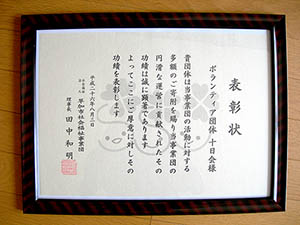 表彰状
ボランティア団体 十日会様
貴団体は当事業団の活動に対する
多額のご寄附を賜り当事業団の
円滑な運営に貢献されたその
功績は誠に顕著であります
よってここにご厚意に対しその
功績を表彰します
平成二十六年八月三日
草加市社会福祉事業団
理事長 田中和明